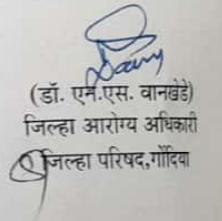 (डॉ. एन.एस. वानखेडे)
जिल्हा आरोग्य अधिकारी
जिल्हा परिषद,गोंदिया